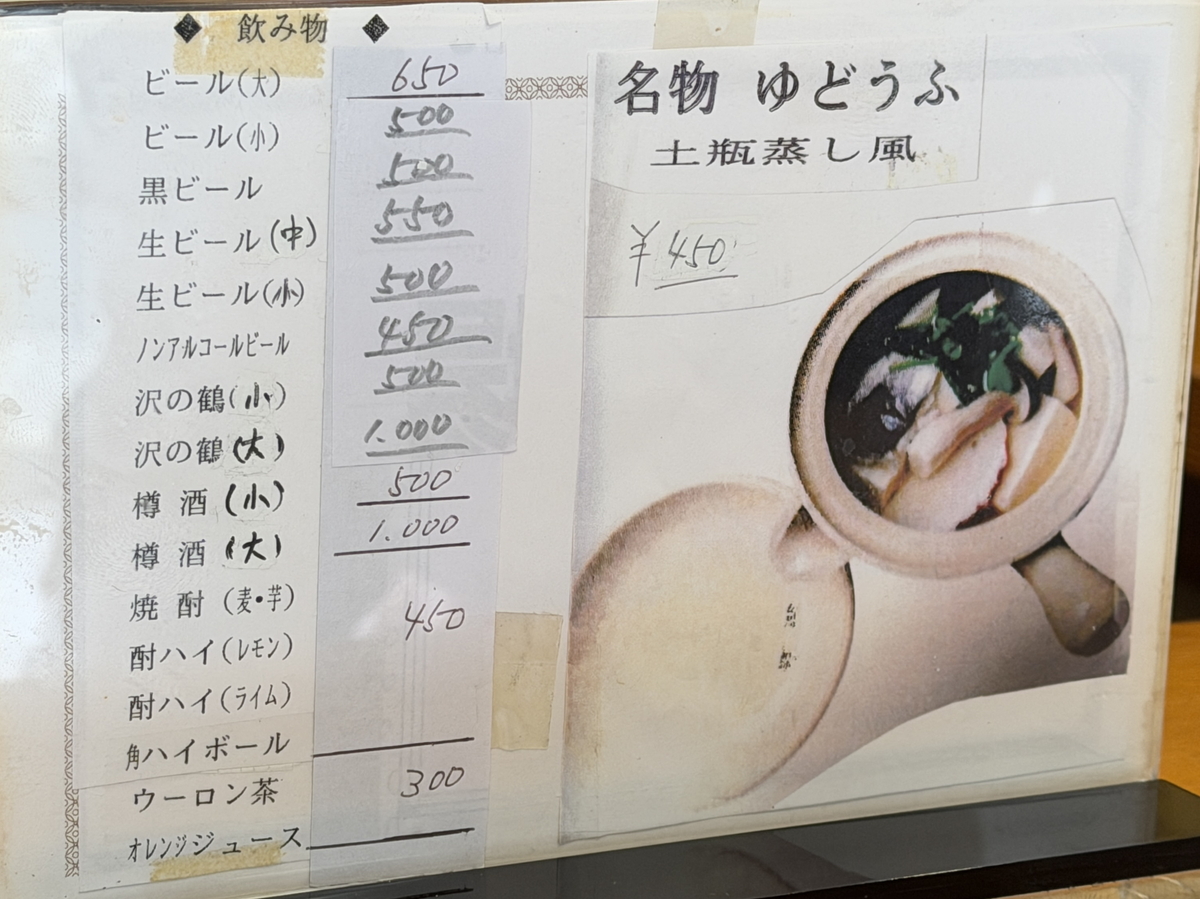 ◆ 飲み物 ◆
ビール(大) 650
ビール(小) 500
黒ビール 500
生ビール(中) 550
生ビール(小) 500
ノンアルコールビール 450
沢の鶴(小) 500
沢の鶴(大) 1.000
樽酒(小) 500
樽酒(大) 1.000
焼酎(麦・芋) 450
酎ハイ(レモン)
酎ハイ(ライム)
角ハイボール
ウーロン茶 300
オレンジジュース
名物 ゆどうふ
土瓶蒸し風
¥450